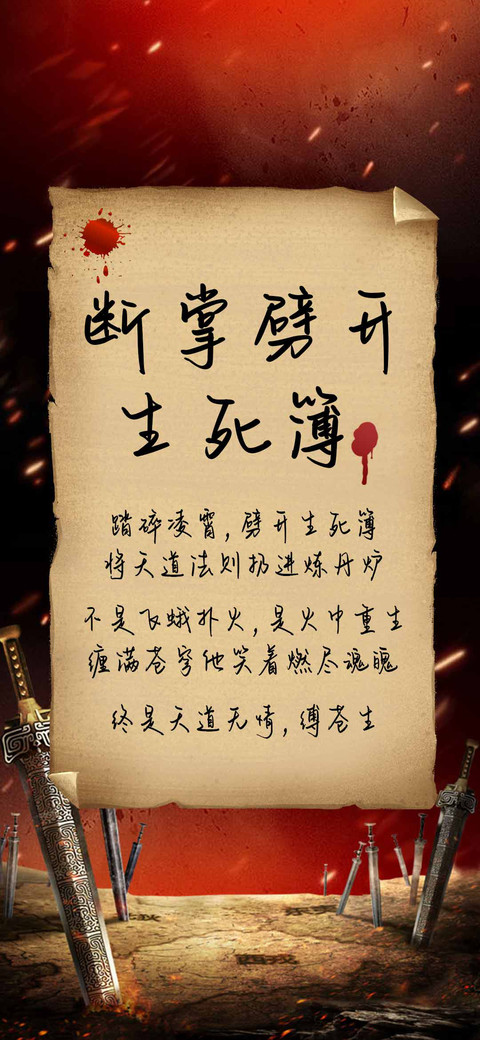 断掌劈开
生死簿
踏碎凌霄,劈开生死簿
将天道法则扔进炼丹炉
不是飞蛾扑火,是火中重生
缠满苍穹他笑着燃尽魂魄
终是天道无情,缚苍生